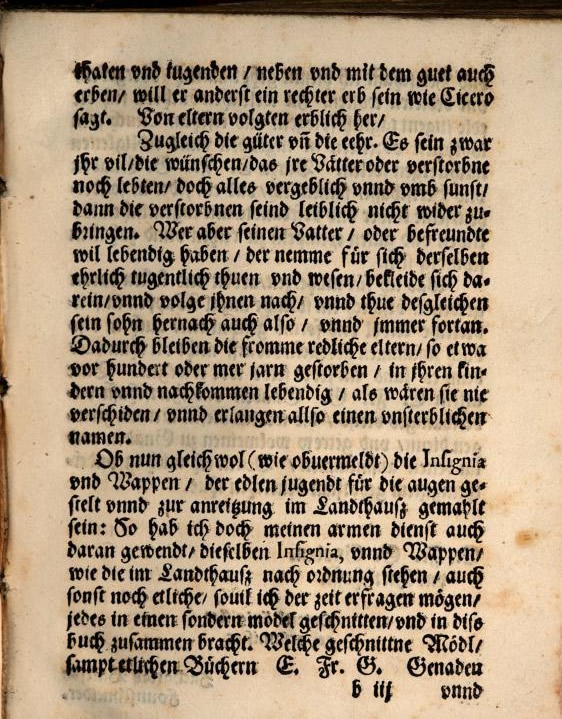 thaten vnd tugenden / neben vnd mit dem guet auch
erben/ will er anderst ein rechter erb sein wie Cicero
sagt. Von eltern volgten erblich her/
Zugleich die güter vñ die eehr. Es sein zwar
jhr vil/die wünschen/das jre Vätter oder verstorbne
noch lebten/ doch alles vergeblich vnnd vmb sunst/
dann die verstorbnen seind leiblich nicht wider zu-
bringen. Wer aber seinen Vatter / oder befreundte
wil lebendig haben / der nemme für sich derselben
ehrlich tugentlich thuen vnd wesen/bekleide sich da-
rein/vnnd volge jhnen nach/ vnnd thue desgleichen
sein sohn hernach auch also / vnnd jmmer fortan.
Dadurch bleiben die fromme redliche eltern/ so etwa
vor hundert oder mer jarn gestorben / in jhren kin-
dern vnnd nachkommen lebendig / als wären sie nie
verschiden / vnnd erlangen allso einen vnsterblichen
namen.
Ob nun gleichwol (wie obuermeldt) die Insignia
vnd Wappen / der edlen jugendt für die augen ge-
stelt vnnd zur anreitzung im Landthausz gemahlt
sein: So hab ich doch meinen armen dienst auch
daran gewendt/ dieselben Insignia, vnnd Wappen/
wie die im Landthausz nach ordnung stehen / auch
sonst noch etliche/ souil ich der zeit erfragen mögen/
jedes in einen sondern model geschnitten/vnd in diss
buch zusammen bracht. Welche geschnittne Mödl/
sampt etlichen Büchern E. Fr. G. Genaden
b iij vnnd